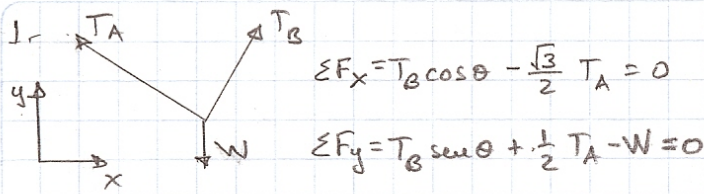 1.-
T_A
T_B
ΣF_x = T_B cos θ - √3/2 T_A = 0
y
ΣF_y = T_B sen θ + 1/2 T_A - W = 0
W
x